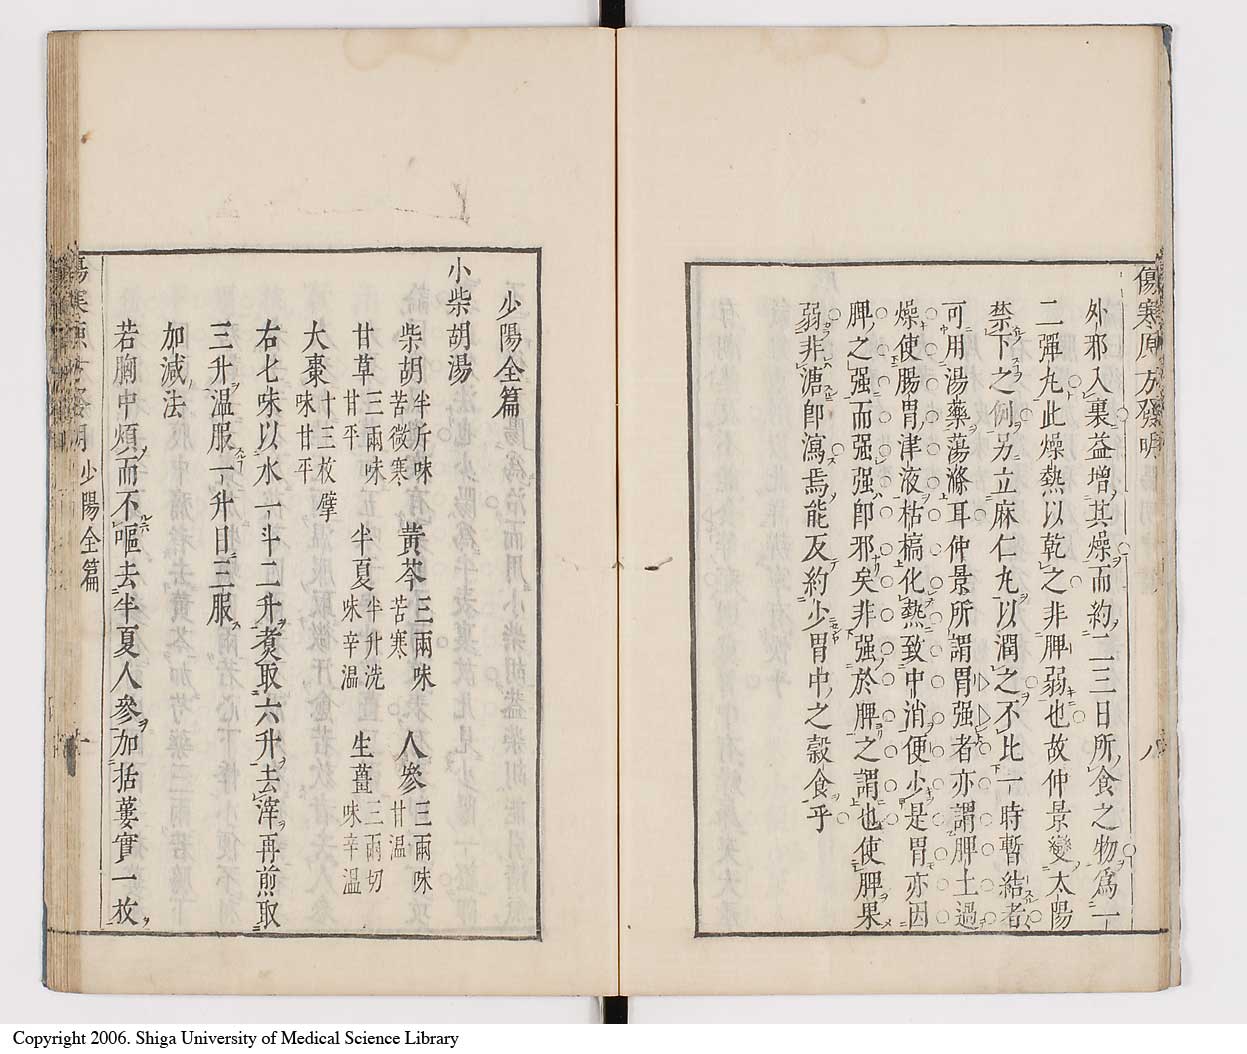 傷寒原方發明
八
外邪入裏益増其燥而約二三日所食之物爲一
二彈丸此燥熱以乾之非脾弱也故仲景變太陽
禁下之例另立麻仁丸以潤之不比一時暫結者
可用湯藥蕩滌耳仲景所謂胃强者亦謂脾土過
燥使腸胃津液枯槁化熱致中消便少是胃亦因
脾之强而强强卽邪矣非强於脾之謂也使脾果
弱非溏卽瀉焉能反約少胃中之穀食乎
少陽全篇
小柴胡湯
柴胡半斤味苦微寒 黃芩三兩味苦寒 人參三兩味甘温
甘草三兩味甘平 半夏半升洗味辛温 生薑三兩切味辛温
大棗十三枚擘味甘平
右七味以水一斗二升煑取六升去滓再煎取
三升温服一升日三服
加減法
若胸中煩而不嘔去半夏人參加括蔞實一枚
少陽全篇
Copyright 2006. Shiga University of Medical Science Library